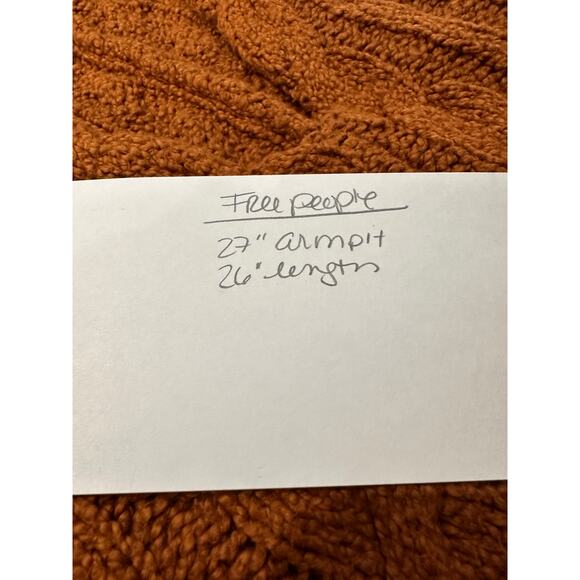 Free people
27" armpit
26" length